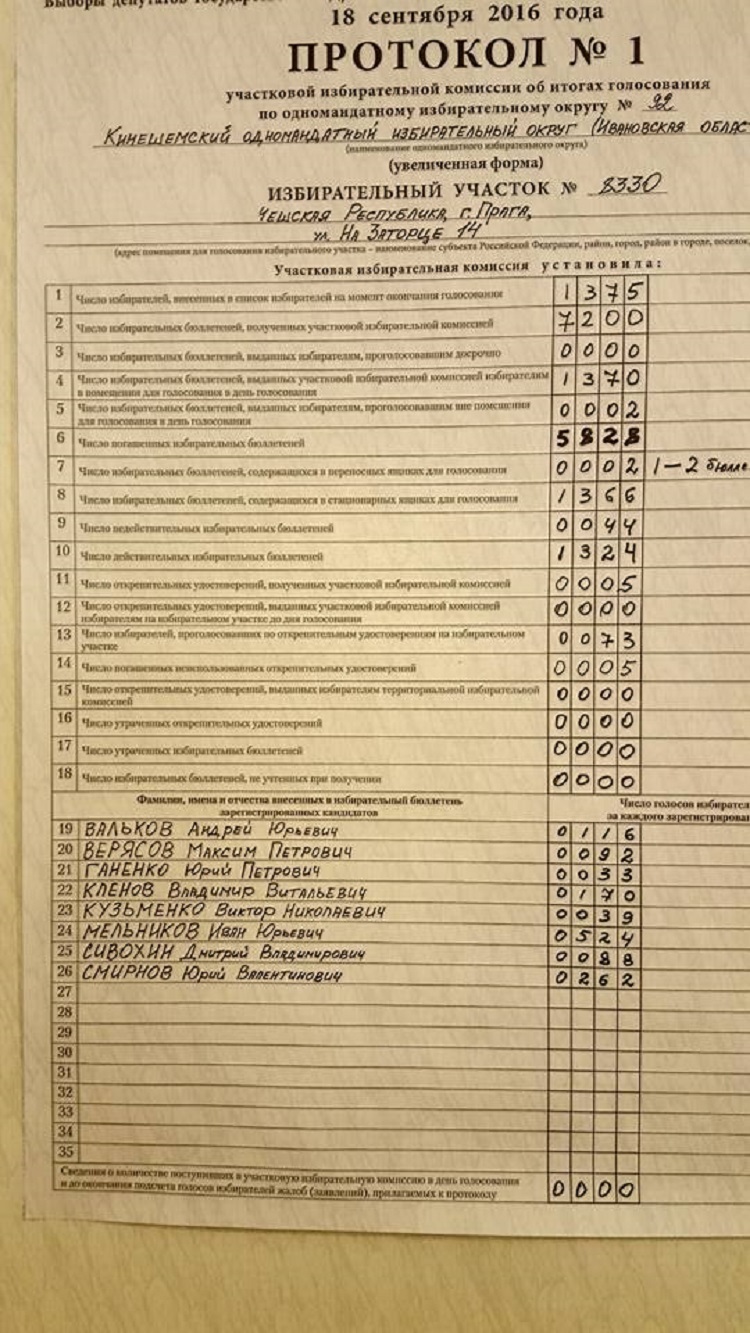 Выборы депутатов
18 сентября 2016 года
ПРОТОКОЛ № 1
участковой избирательной комиссии об итогах голосования
по одномандатному избирательному округу № 92
Кинешемский одномандатный избирательный округ (Ивановская облас
(наименование одномандатного избирательного округа)
(увеличенная форма)
ИЗБИРАТЕЛЬНЫЙ УЧАСТОК № 8330
Чешская Республика, г. Прага,
ул. На Заторце 14
(адрес помещения для голосования избирательного участка – наименование субъекта Российской Федерации, район, город, район в городе, поселок,
Участковая избирательная комиссия установила:
1 Число избирателей, внесенных в список избирателей на момент окончания голосования 1375
2 Число избирательных бюллетеней, полученных участковой избирательной комиссией 7200
3 Число избирательных бюллетеней, выданных избирателям, проголосовавшим досрочно 0000
4 Число избирательных бюллетеней, выданных участковой избирательной комиссией избирателям 1370
в помещении для голосования в день голосования
5 Число избирательных бюллетеней, выданных избирателям, проголосовавшим вне помещения 0002
для голосования в день голосования
6 Число погашенных избирательных бюллетеней 5828
7 Число избирательных бюллетеней, содержащихся в переносных ящиках для голосования 0002 1–2 бюлле
8 Число избирательных бюллетеней, содержащихся в стационарных ящиках для голосования 1366
9 Число недействительных избирательных бюллетеней 0044
10 Число действительных избирательных бюллетеней 1324
11 Число открепительных удостоверений, полученных участковой избирательной комиссией 0005
12 Число открепительных удостоверений, выданных участковой избирательной комиссией 0000
избирателям на избирательном участке до дня голосования
13 Число избирателей, проголосовавших по открепительным удостоверениям на избирательном 0073
участке
14 Число погашенных неиспользованных открепительных удостоверений 0005
15 Число открепительных удостоверений, выданных избирателям территориальной избирательной 0000
комиссией
16 Число утраченных открепительных удостоверений 0000
17 Число утраченных избирательных бюллетеней 0000
18 Число избирательных бюллетеней, не учтенных при получении 0000
Фамилии, имена и отчества внесенных в избирательный бюллетень Число голосов избирател
зарегистрированных кандидатов за каждого зарегистрирован
19 ВАЛЬКОВ Андрей Юрьевич 0116
20 ВЕРЯСОВ Максим Петрович 0092
21 ГАНЕНКО Юрий Петрович 0033
22 КЛЕНОВ Владимир Витальевич 0170
23 КУЗЬМЕНКО Виктор Николаевич 0039
24 МЕЛЬНИКОВ Иван Юрьевич 0524
25 СИВОХИН Дмитрий Владимирович 0088
26 СМИРНОВ Юрий Валентинович 0262
27
28
29
30
31
32
33
34
35
Сведения о количестве поступивших в участковую избирательную комиссию в день голосования
и до окончания подсчета голосов избирателей жалоб (заявлений), прилагаемых к протоколу 0000